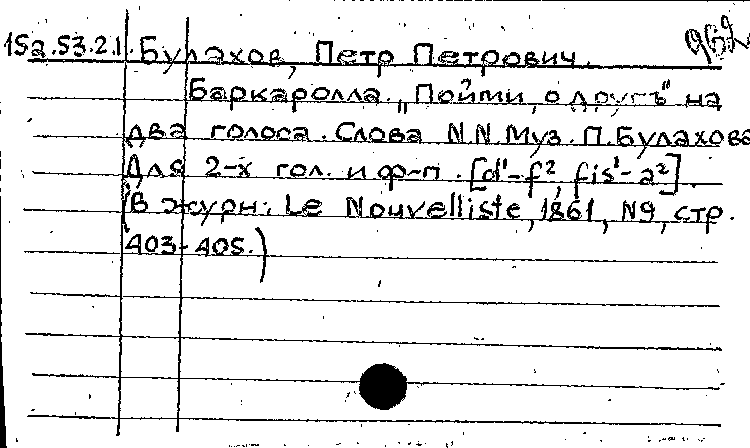 1Sa.S3.2.1. Булахов, Петр Петрович.
Баркаролла „Пойми, о другъ" на
два голоса. Слова N.N. Муз. П. Булахова
Для 2-х гол. и ф-п. [d¹-f², fis¹-a²].
(В журн.: Le Nouvelliste, 1861, N9, стр.
403-405.)